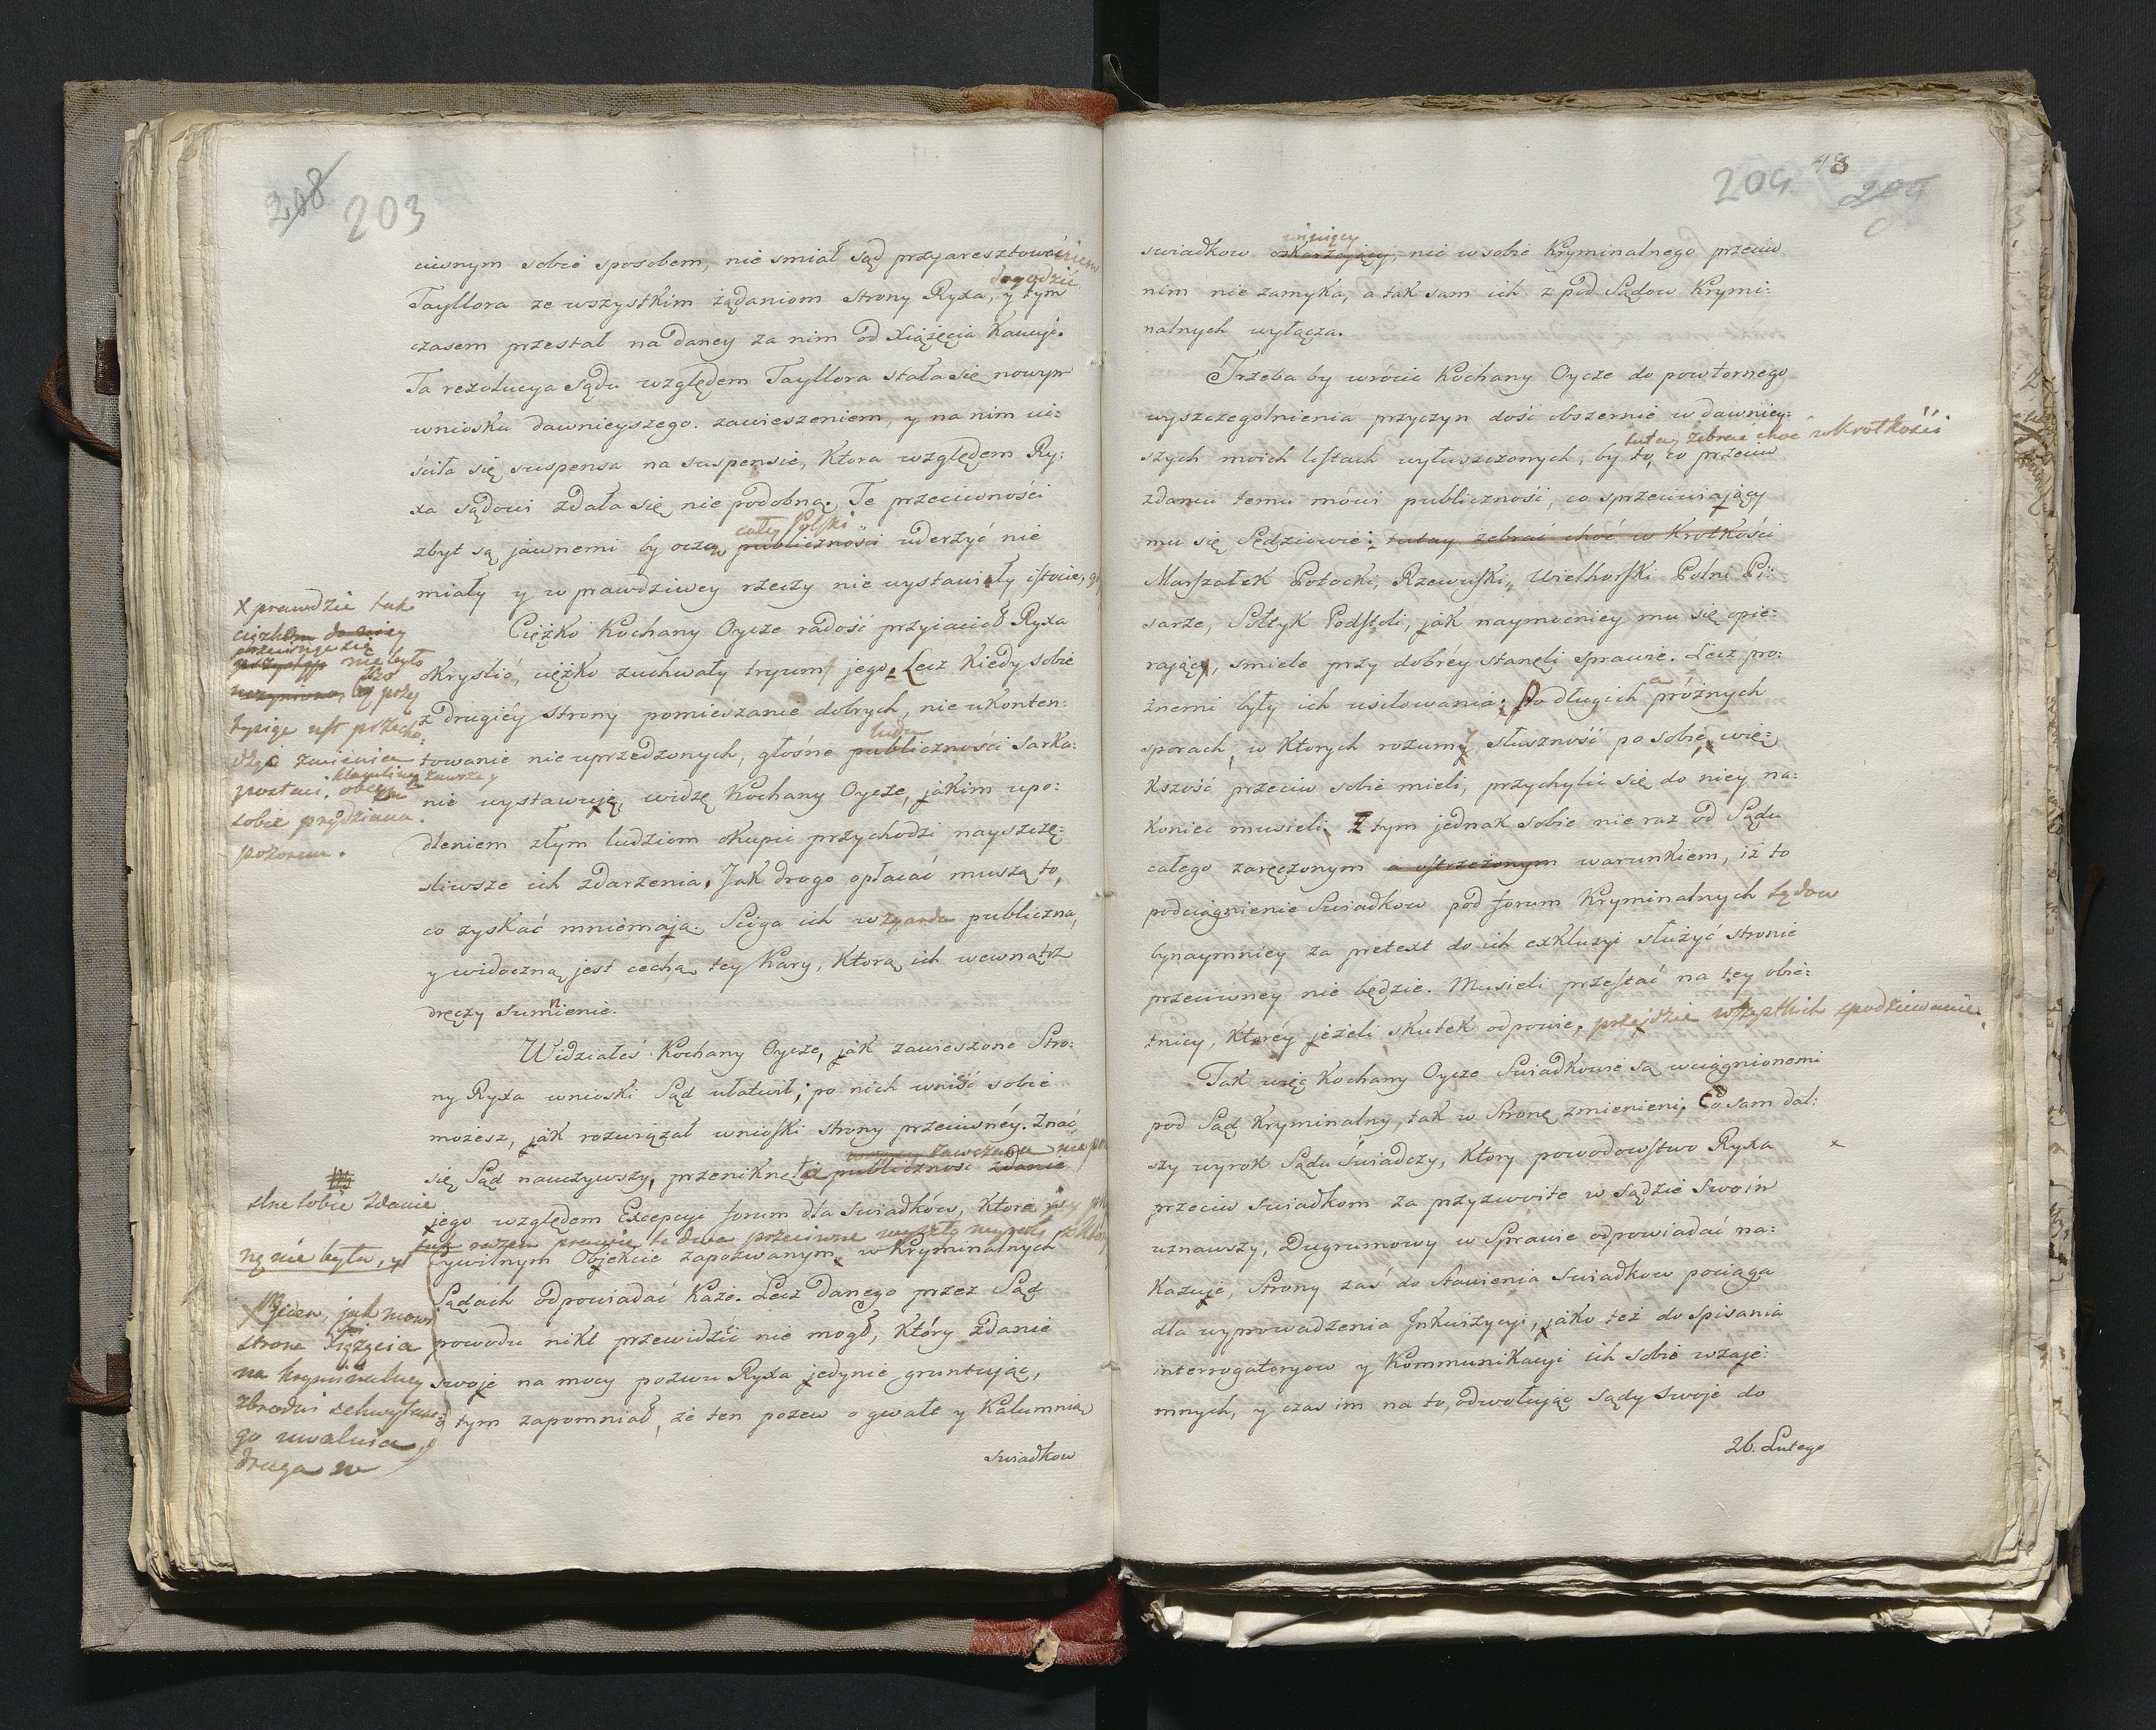 208 203
ciwnym sobie sposobem, nie smiał Sąd przyaresztowaniem
dogodzić
Tayllora ze wszystkim żądaniom strony Ryxa, y tym
czasem przestał na daney za nim od Xiążęcia Kaucyi.
Ta rezolucya Sądu względem Tayllora stała się nowym
wniosku dawnieyszego zawieszeniem, y na nim ui:
ściła się suspensa na suspensie, Ktora względem Ry:
xa Sądowi zdała się nie podobną. Te przeciwności
cały Polski
zbyt są jawnemi by oczu publiczności uderzyć nie
miały y w prawdziwey rzeczy nie wystawiały istocie,
X prawdzie tak
nie było
sobie
pozorem.
Ciężko Kochany Oycze radość przyiaciół Ryxa
okryslić, ciężko zuchwały tryumf jego. Lecz Kiedy sobie
z drugiéy strony pomieszanie dobrych, nie ukonten:
ludu
towanie nieuprzedzonych, głośne publiczności sarka:
nie wystawuję, widzę Kochany Oycze, jakim upo:
dleniem złym ludziom okupić przychodzi nayszczę:
sliwsze ich zdarzenia. Jak drogo opłacać muszą to,
co zyskać mniemają. Sciga ich wzgarda publiczna,
y widoczną jest cechą tey Kary, Ktorą ich wewnątrz
dręczy sumnienie.
Widziałeś Kochany Oycze, jak zawieszone Stro:
ny Ryxa wnioski Sąd ułatwił; po nich wniść sobie
możesz, jak rozwiązał wnioski strony przeciwnéy. Znać
się Sąd nauzywszy, przeniknęła publiczność zdanie
slne sobie zdanie
jego względem Excepcyi forum dla swiadków, Ktore
tak razem prawie te dwa przeciwne
nę nie była, y
Cywilnym Objekcie zapozwanym, w Kryminalnych
Sądach odpowiadać Każe. Lecz danego przez Sąd
jeden, jak mowi
strona Xiążęcia
na kryminalney
zbrodni schwytane:
go uwalnia,
druga w
powodu nikt przewidzić nie mogł, Który zdanie
swoje na mocy pozwu Ryxa jedynie gruntując,
o tym zapomniał, że ten pozew o gwałt y Kalumnią
swiadkow
204 98
swiadkow oskarżający, nic w sobie Kryminalnego przeciw
winiący
nim nie zamyka, a tak sam ich z pod Sądow Krymi:
nalnych wyłącza.
Trzeba by wrócić Kochany Oycze do powtornego
wyszczegolnienia przyczyn dość obszernie w dawniey:
tutay zebrać choć w krotkości
szych moich listach wyłuszczonych, by to, co przeciw
zdaniu temu mówi publiczność, co sprzeciwiający
mu się Sędziowie; tutay zebrać choć w Krotkości
Marszałek Potocki, Rzewuski, Wielhorski Polni Pi:
sarze, Sołtyk Podstoli, jak naymocniey mu się opie:
rający, smiele przy dobréy stanęli sprawie. Lecz pro:
żnemi były ich usiłowania; Po długich a próżnych
sporach, w Ktorych rozum y słuszność po sobie, wię:
kszość przeciw sobie mieli, przychylić się do niey na:
koniec musieli. Z tym jednak sobie nie raz od Sądu
całego zaręczonym a ostrzeżonym warunkiem, iż to
podciągnienie Swiadkow pod forum Kryminalnych Sądow
bynaymniey za pretext do ich exkluzyi służyć stronie
przeciwney nie będzie. Musieli przestać na tey obie:
tnicy, Któréy jeżeli skutek odpowie, przejdzie wszystkich spodziewanie.
Tak więc Kochany Oycze Swiadkowie są wciągnionemi
pod Sąd Kryminalny, tak w Stronę zmienieni. Co sam dal:
szy wyrok Sądu świadczy, Ktory powodowstwo Ryxa
przeciw swiadkom za przyzwoite w sądzie swoim
uznawszy, Dugrumowy w Sprawie odpowiadać na:
kazuje, Strony zaś do stawienia swiadkow pociąga
dla wyprowadzenia Inkwizycyi, jako też do spisania
interrogatoryow y Kommunikacyi ich sobie wzaje:
mnych, y czas im na to, odwołując sądy swoje do
26. Lutego